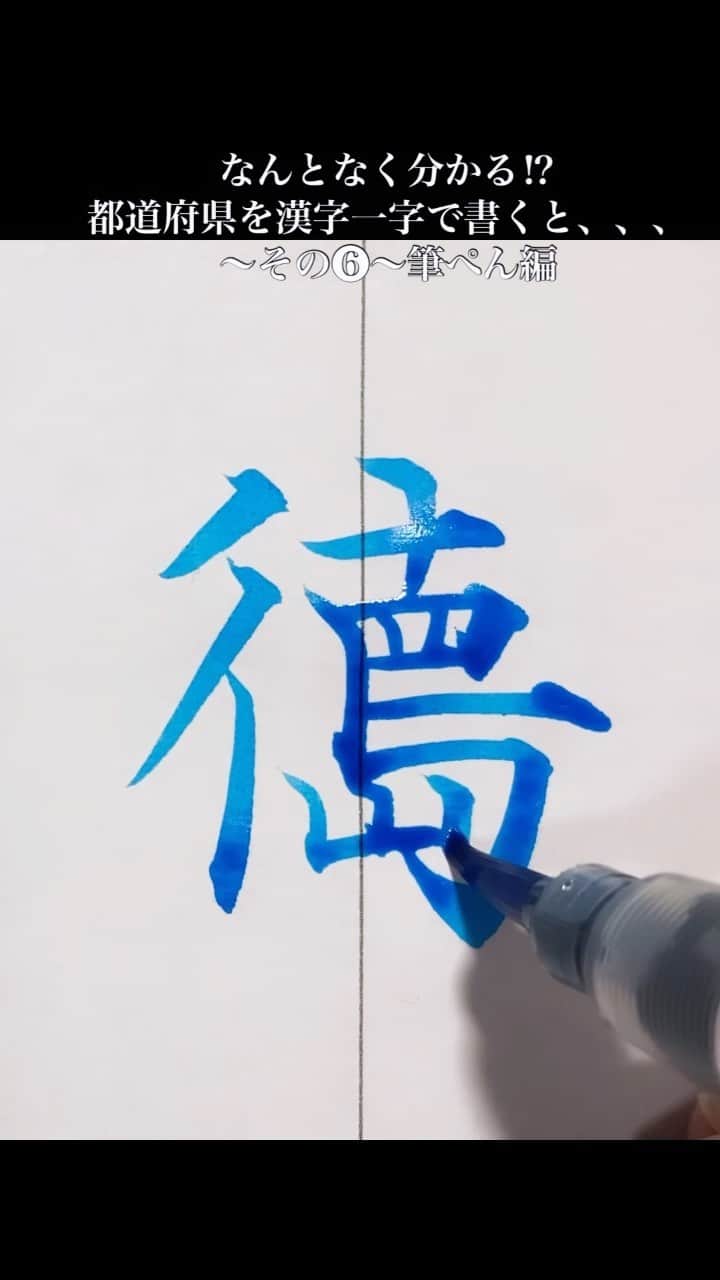 なんとなく分かる⁉
都道府県を漢字一字で書くと、、、
〜その❻〜筆ぺん編